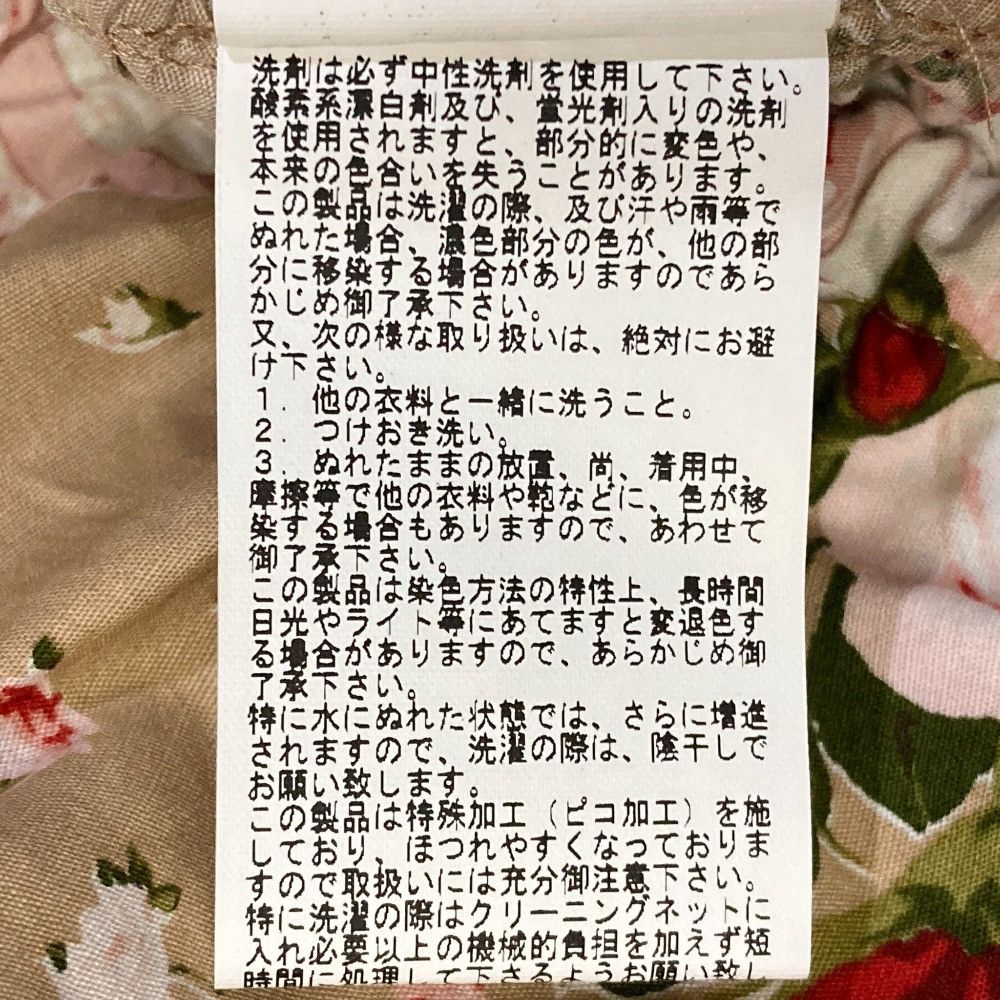 洗剤は必ず中性洗剤を使用して下さい。
酸素系漂白剤及び、蛍光剤入りの洗剤
を使用されますと、部分的に変色や、
本来の色合いを失うことがあります。
この製品は洗濯の際、及び汗や雨等で
ぬれた場合、濃色部分の色が、他の部
分に移染する場合がありますのであら
かじめ御了承下さい。
又、次の様な取り扱いは、絶対にお避
け下さい。
1．他の衣料と一緒に洗うこと。
2．つけおき洗い。
3．ぬれたままの放置、尚、着用中、
摩擦等で他の衣料や鞄などに、色が移
染する場合もありますので、あわせて
御了承下さい。
この製品は染色方法の特性上、長時間
日光やライト等にあてますと変退色す
る場合がありますので、あらかじめ御
了承下さい。
特に水にぬれた状態では、さらに増進
されますので、洗濯の際は、陰干しで
お願い致します。
この製品は特殊加工（ピコ加工）を施
しており、ほつれやすくなっておりま
すので取扱いには充分御注意下さい。
特に洗濯の際はクリーニングネットに
入れ必要以上の機械的負担を加えず短
時間に処理して下さるようお願い致し